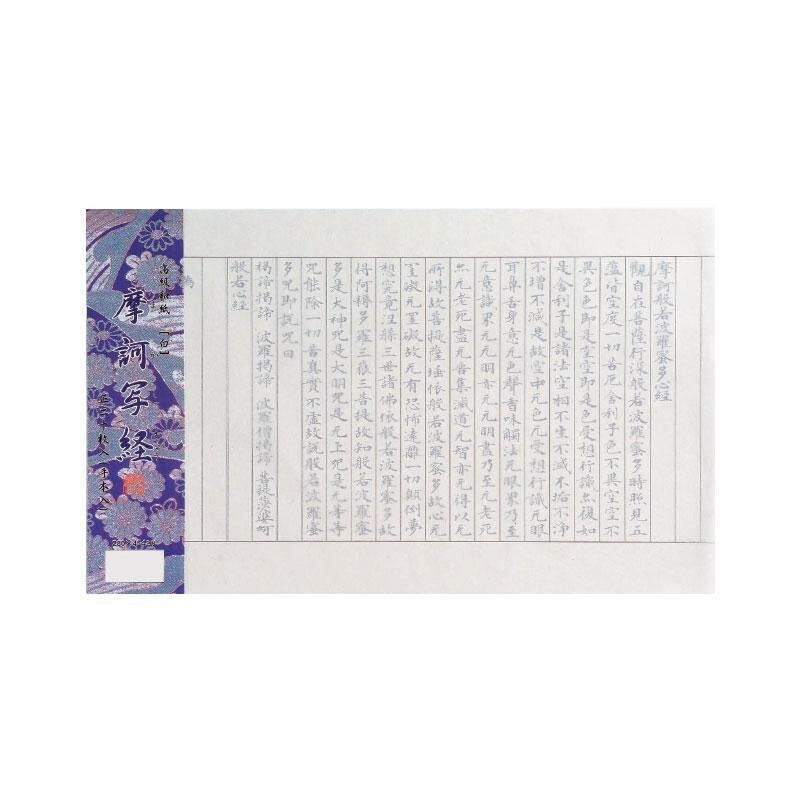 摩訶般若波羅蜜多心経
觀自在菩薩行深般若波羅蜜多時照見五
蘊皆空度一切苦厄舎利子色不異空空不
異色色即是空空即是色受想行識亦復如
是舎利子是諸法空相不生不滅不垢不淨
不增不減是故空中无色无受想行識无眼
耳鼻舌身意无色聲香味觸法无眼界乃至
无意識界无无明亦无无明盡乃至无老死
亦无老死盡无苦集滅道无智亦无得以无
所得故菩提薩埵依般若波羅蜜多故心无
罣礙无罣礙故无有恐怖遠離一切顛倒夢
想究竟涅槃三世諸佛依般若波羅蜜多故
得阿耨多羅三藐三菩提故知般若波羅蜜
多是大神咒是大明咒是无上咒是无等等
咒能除一切苦真實不虛故説般若波羅蜜
多咒即説咒曰
揭諦揭諦 波羅揭諦 波羅僧揭諦 菩提娑婆呵
般若心経
為
高級和紙 [白]
摩訶写経
(手本入)